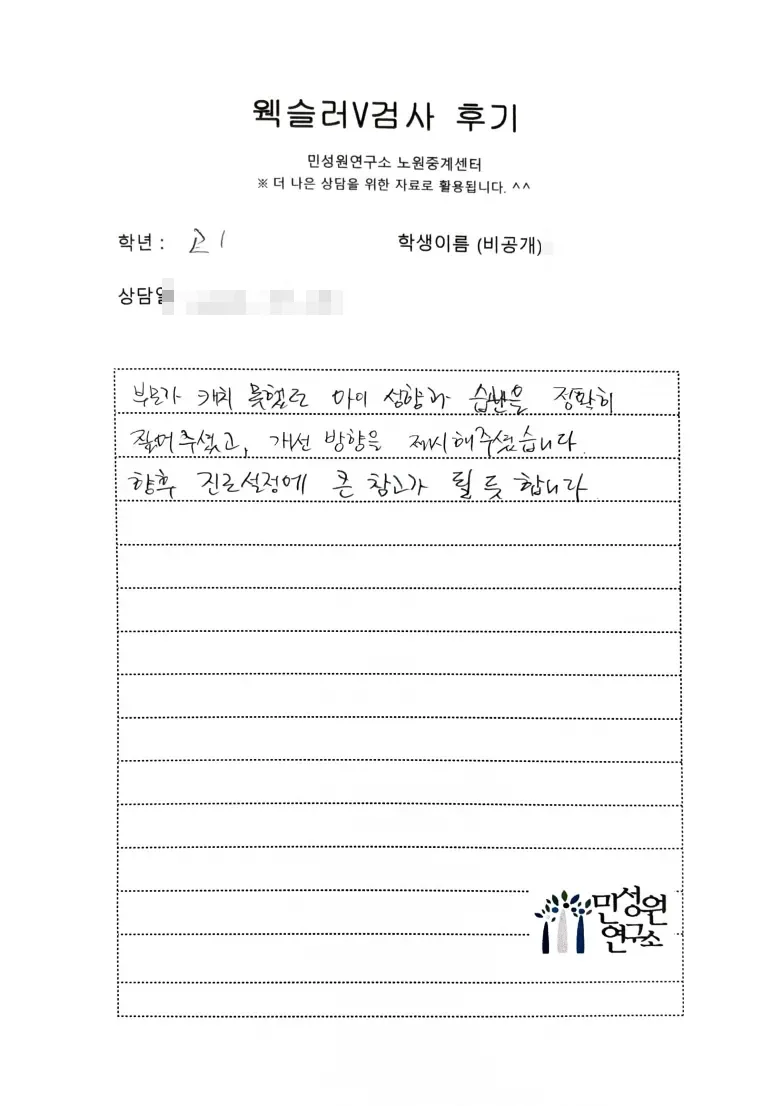 웩슬러V검사 후기
민성원연구소 노원중계센터
※ 더 나은 상담을 위한 자료로 활용됩니다. ^^
학년 : 고1
학생이름 (비공개)
상담일
부모가 캐치 못했던 아이 성향과 습관을 정확히
짚어주셨고, 개선 방향을 제시해주셨습니다.
향후 진로설정에 큰 참고가 될 듯 합니다.
민성원
연구소